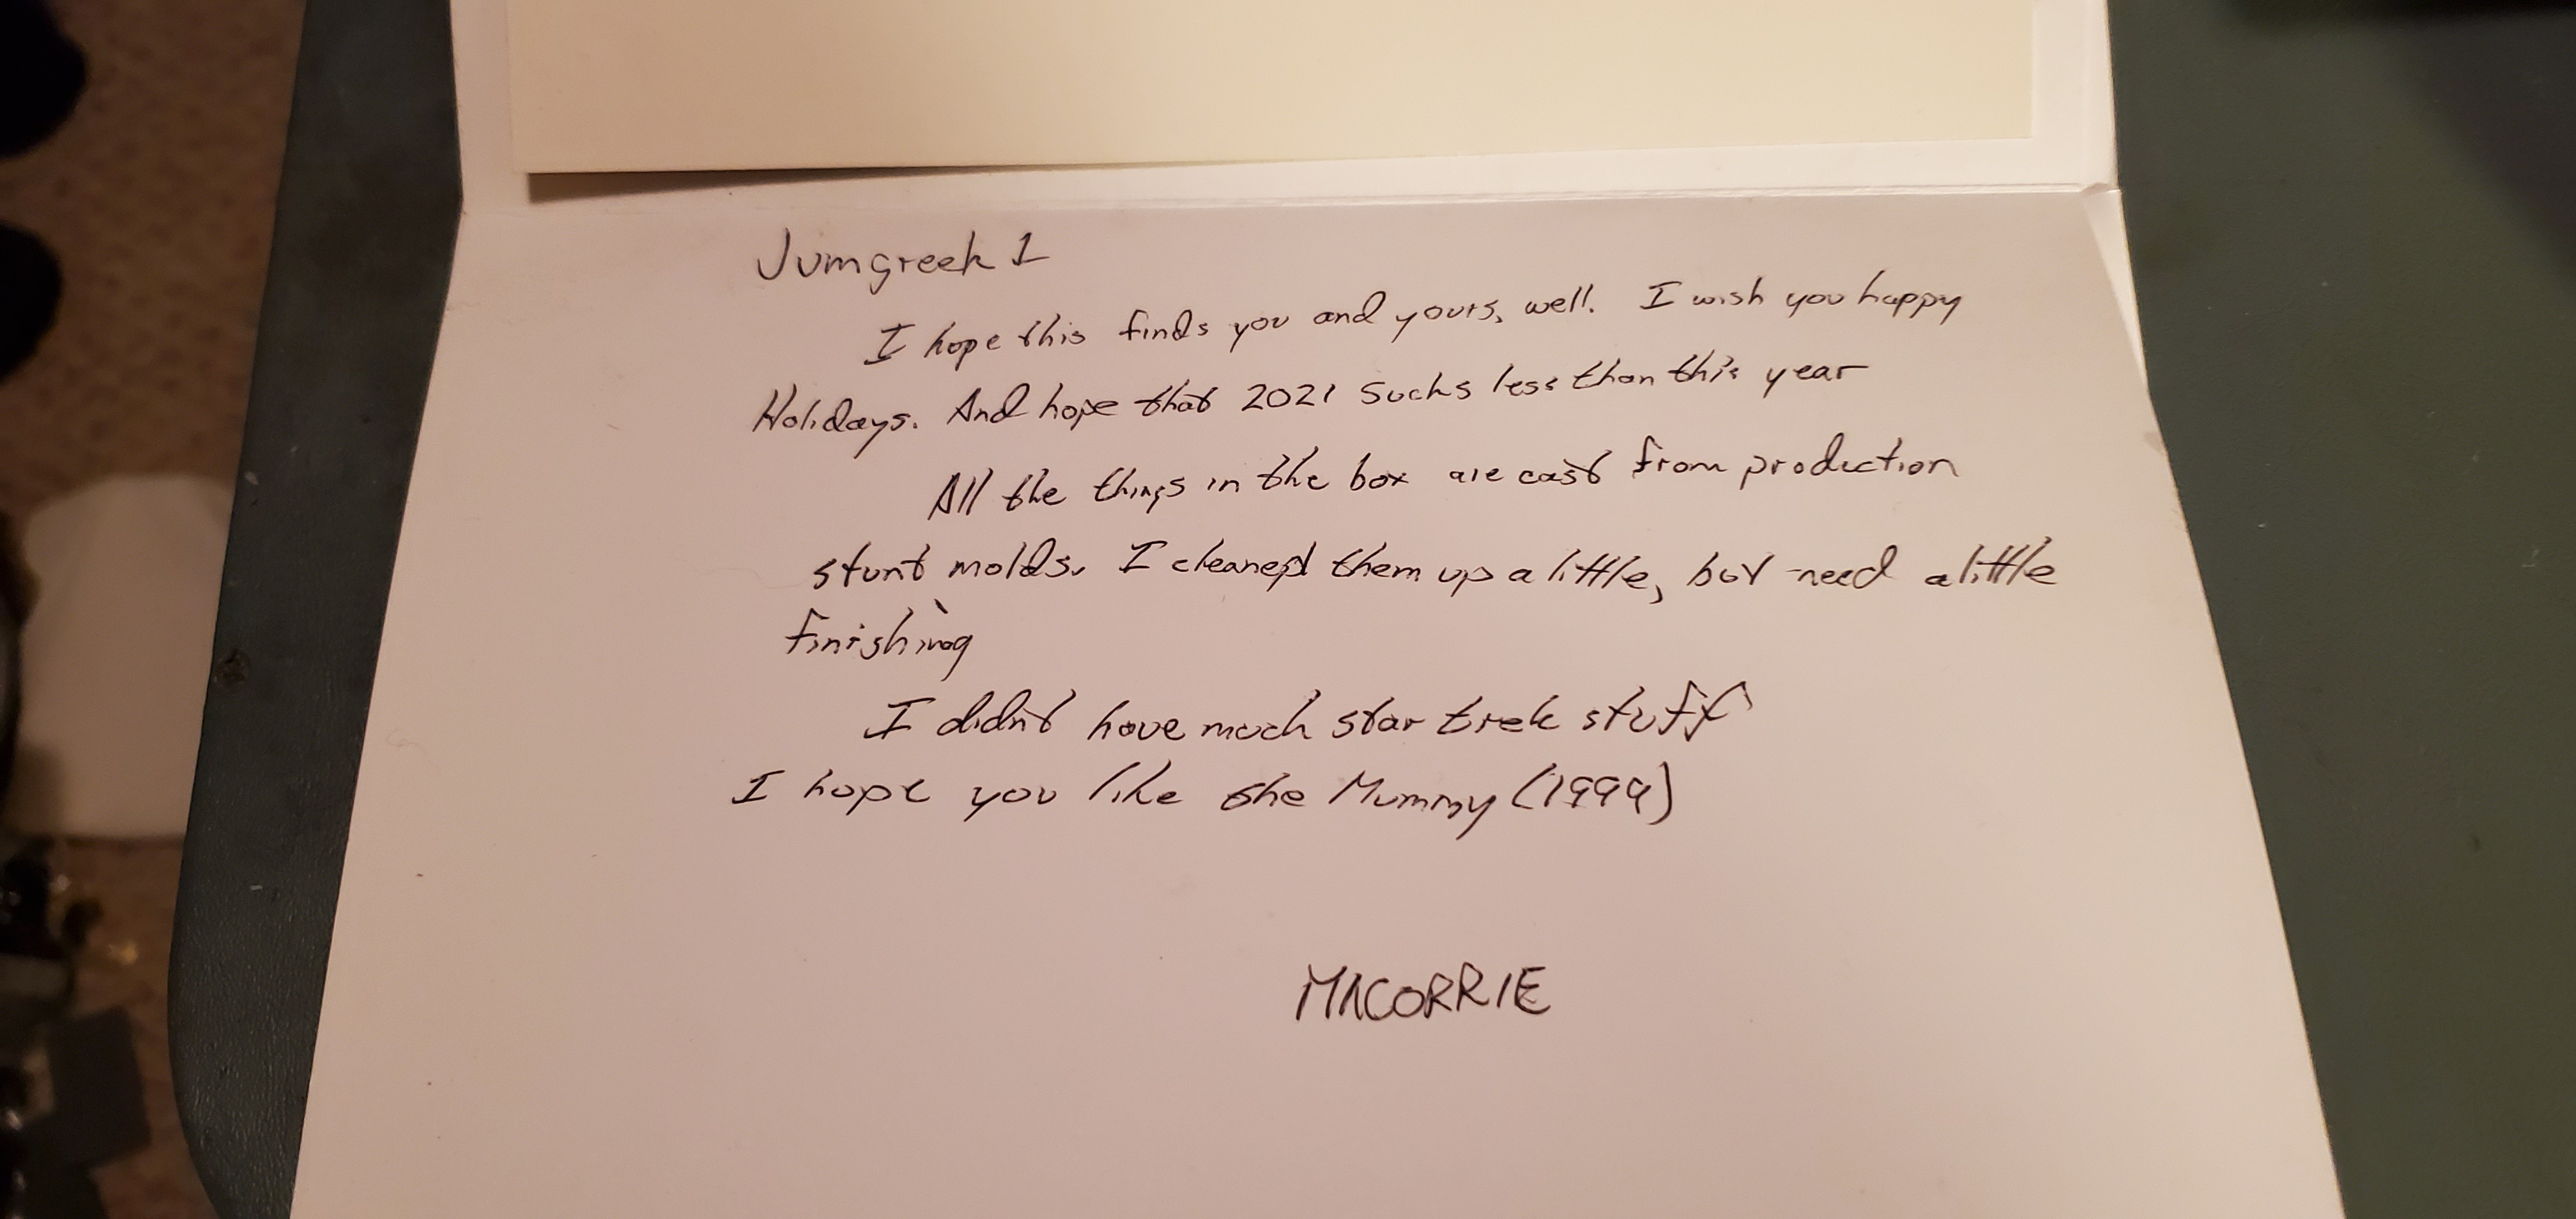 Jumgreek 1
I hope this finds you and yours, well. I wish you happy
Holidays. And hope that 2021 sucks less than this year
All the things in the box are cast from production
stunt molds. I cleaned them up a little, but need a little
finishing
I didn't have much star trek stuff
I hope you like the Mummy (1999)
MACORRIE